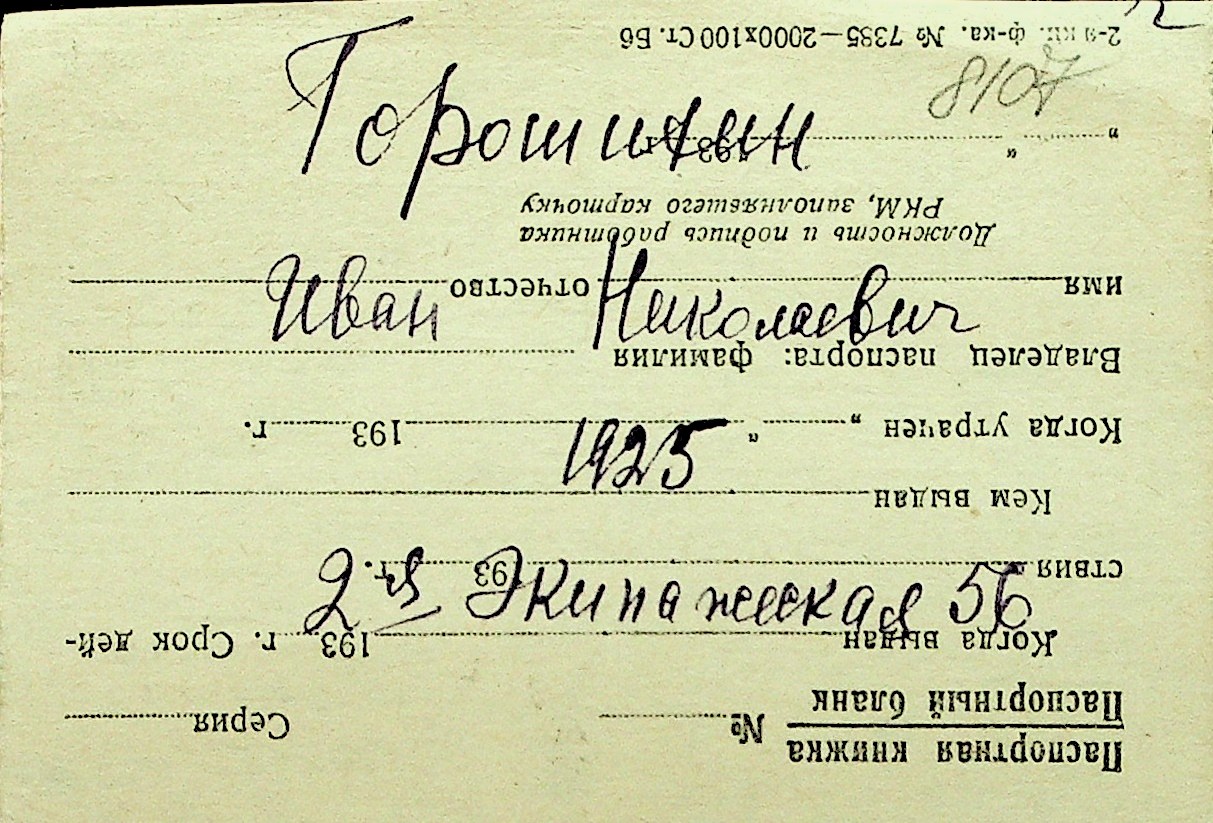 8107
Горошихин
Иван Николаевич
1925
2-я Экипажская 56
Паспортная книжка
Паспортный бланк № Серия
Когда выдан 193 г. Срок дей-
ствия 193 г.
Кем выдан
Когда утрачен „ “ 193 г.
Владелец паспорта: фамилия
имя отчество
Должность и подпись работника
РКМ, заполнявшего карточку
„ “ 193 г.
2-я кн. ф-ка. № 7385—2000х100 Ст. Бб